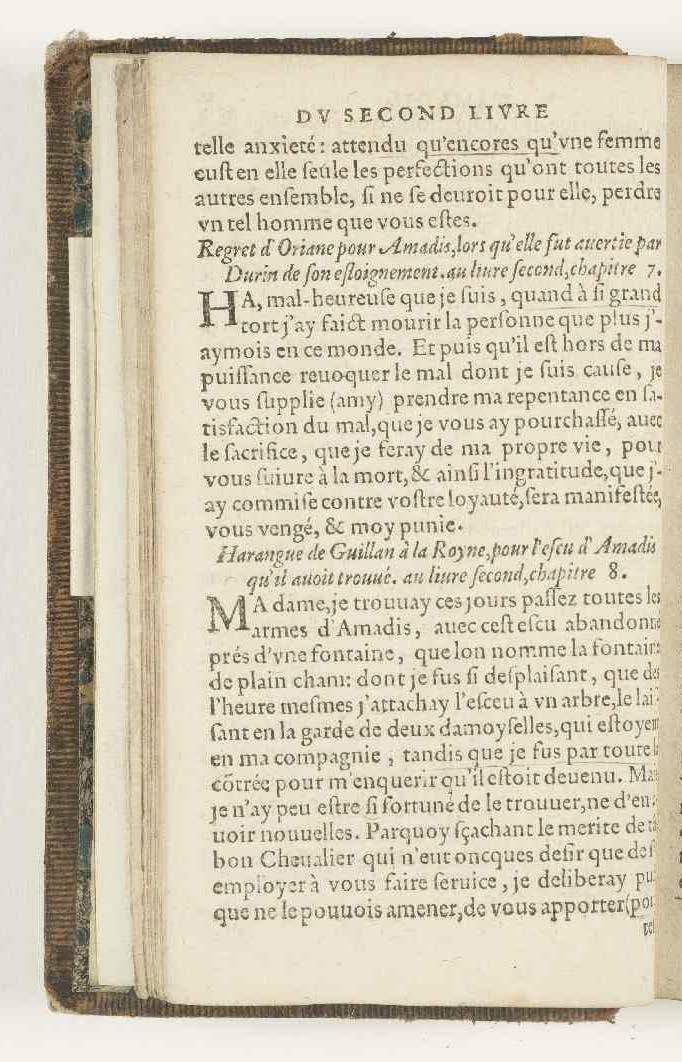 DV SECOND LIVRE
telle anxieté : attendu qu'encores qu'vne femme
eust en elle seule les perfections qu'ont toutes les
autres ensemble, si ne se deuroit pour elle, perdre
vn tel homme que vous estes.
Regret d'Oriane pour Amadis, lors qu'elle fut auertie par
Durin de son esloignement. au liure second, chapitre 7.
HA, mal-heureuse que je suis, quand à si grand
tort j'ay faict mourir la personne que plus j'-
aymois en ce monde. Et puis qu'il est hors de ma
puissance reuoquer le mal dont je suis cause, je
vous supplie (amy) prendre ma repentance en sa-
tisfaction du mal, que je vous ay pourchassé, auec
le sacrifice, que je feray de ma propre vie, pour
vous suiure à la mort, & ainsi l'ingratitude, que j'-
ay commise contre vostre loyauté, sera manifestée,
vous vengé, & moy punie.
Harangue de Guillan à la Royne, pour l'escu d'Amadis
qu'il auoit trouué. au liure second, chapitre 8.
MA dame, je trouuay ces jours passez toutes les
armes d'Amadis, auec cest escu abandonné
prés d'vne fontaine, que lon nomme la fontaine
de plain cham: dont je fus si desplaisant, que des
l'heure mesmes j'attachay l'esceu à vn arbre, le lais-
sant en la garde de deux damoyselles, qui estoyent
en ma compagnie, tandis que je fus par toute la
cõtrée pour m'enquerir qu'il estoit deuenu. Mais
je n'ay peu estre si fortuné de le trouuer, ne d'en
uoir nouuelles. Parquoy sçachant le merite de
bon Cheualier qui n'eut oncques desir que de s'
employer à vous faire seruice, je deliberay
que ne le pouuois amener, de vous apporter (pour
tel